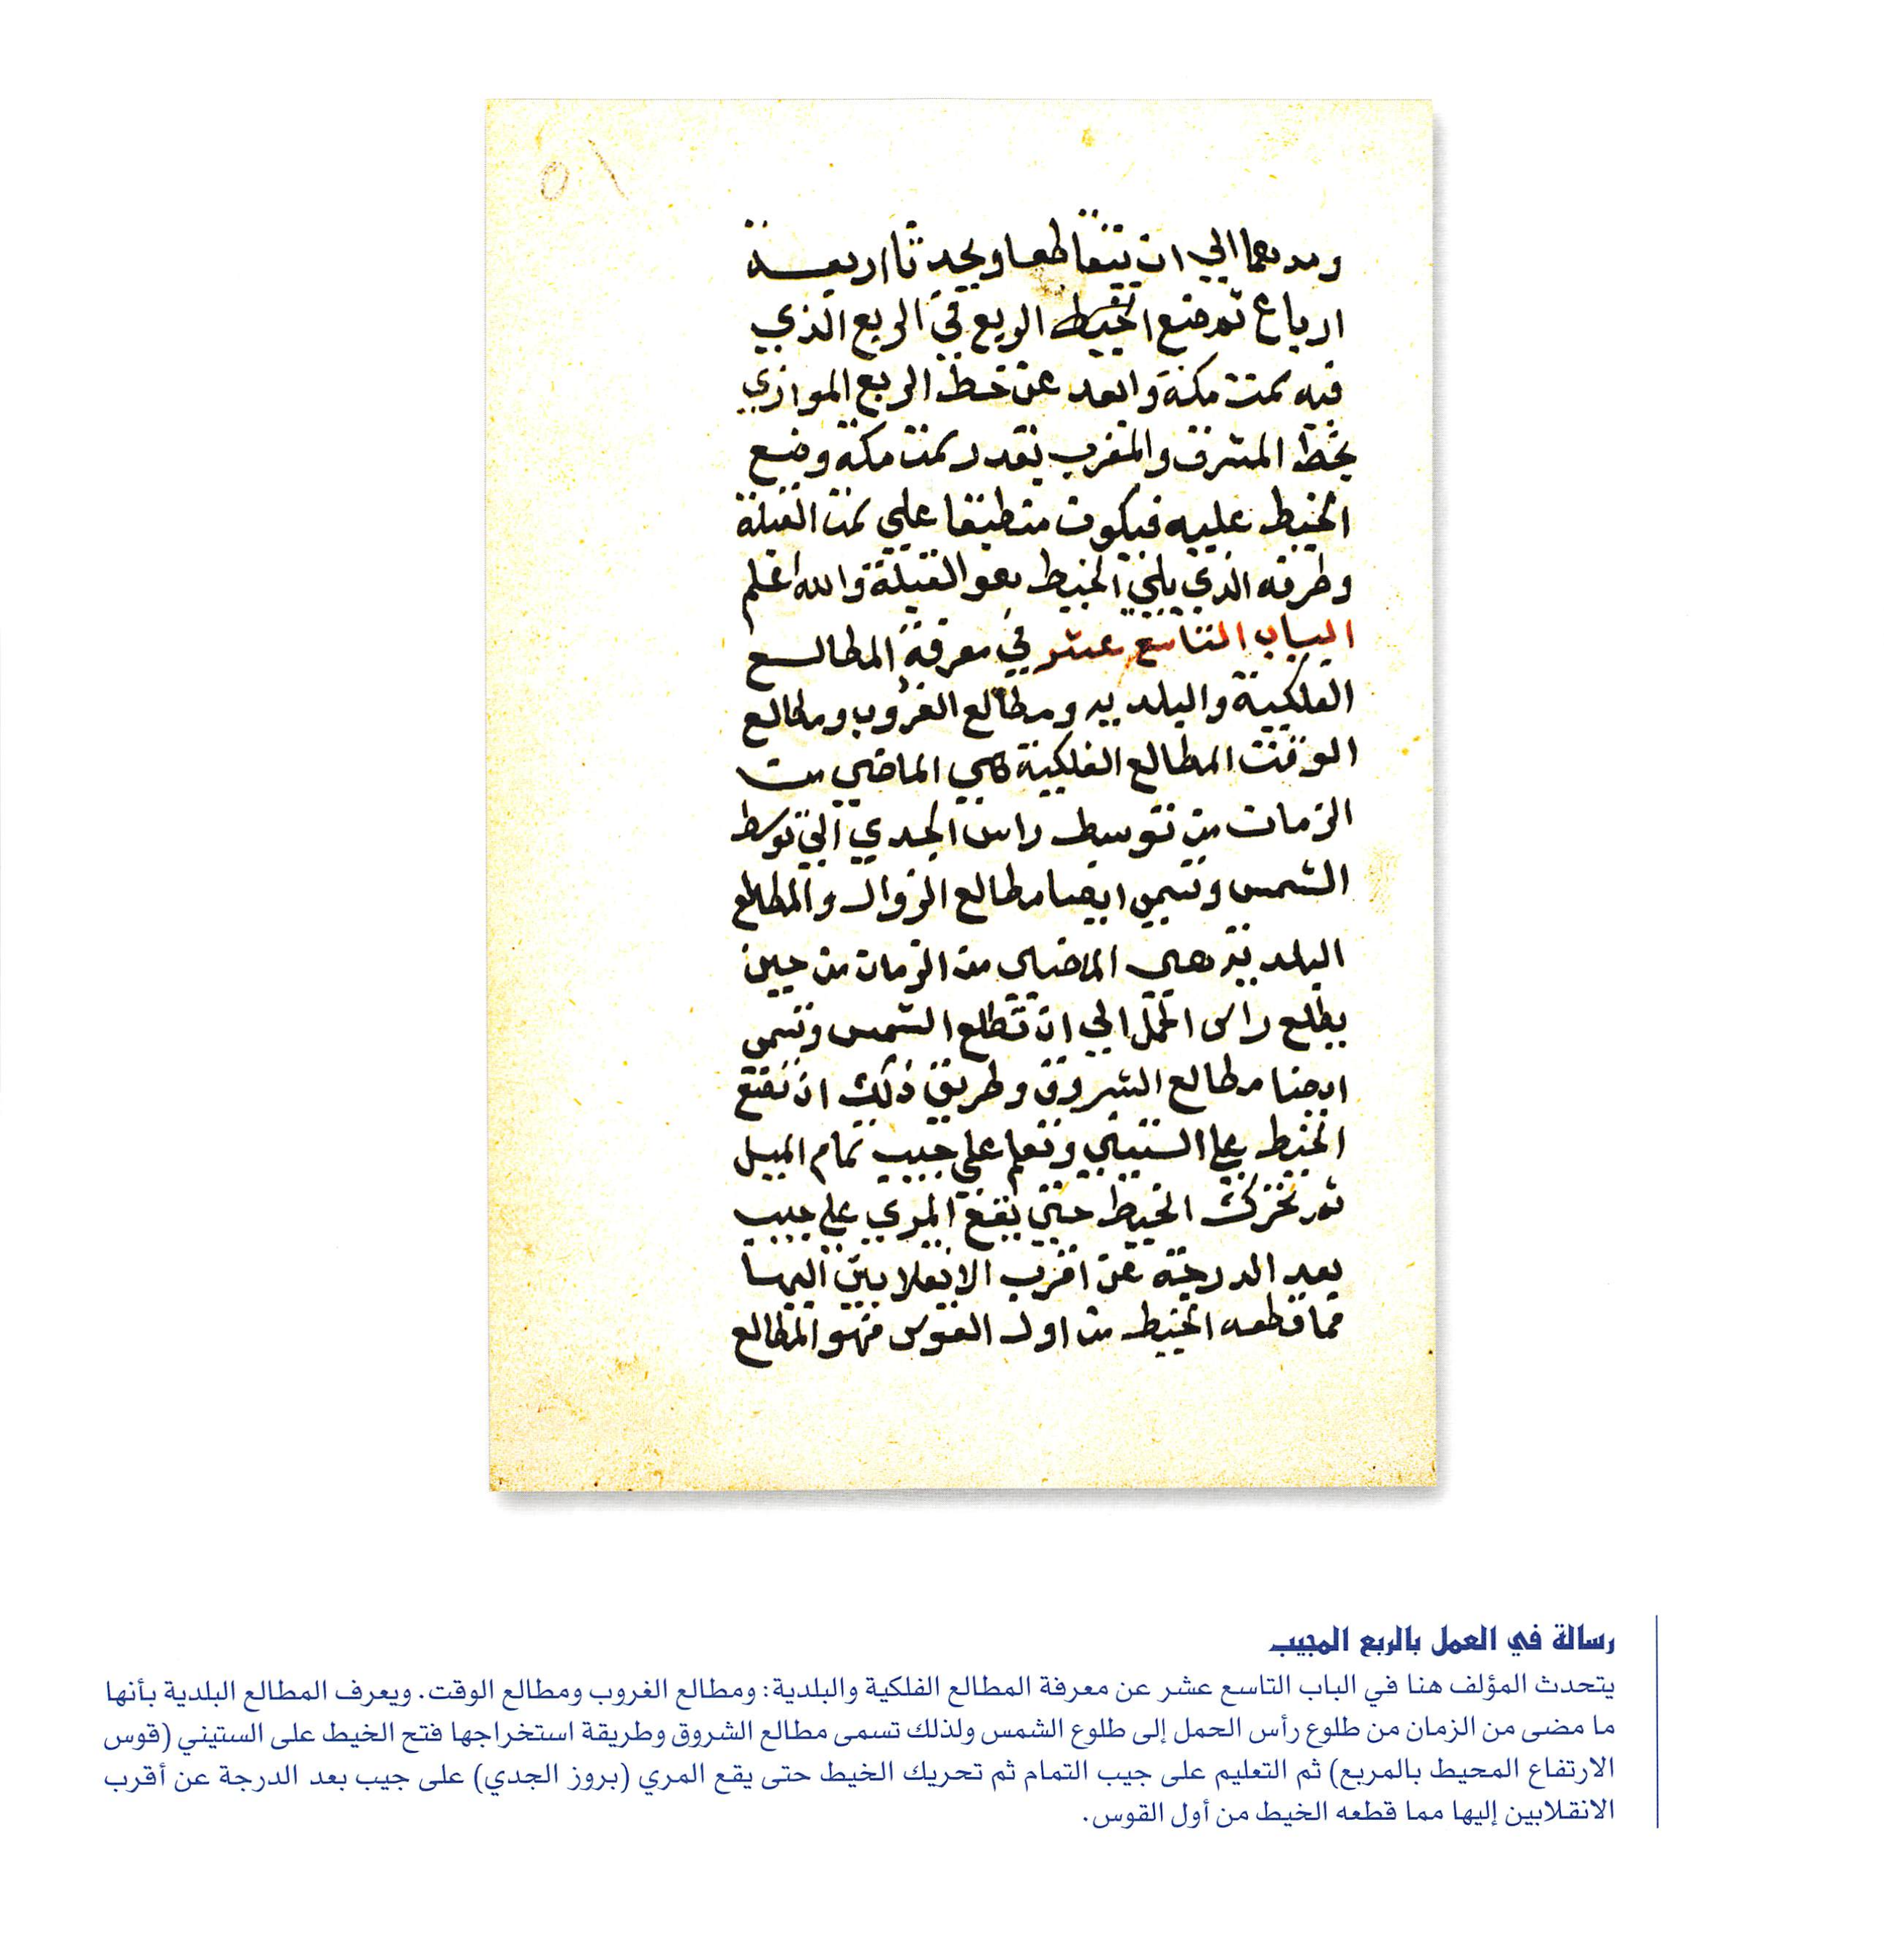 ٥١
ومدهما الي ان يتقاطعا ويحدثا اربعة
ارباع ثم ضع الربع في الربع الذي
فيه سمت مكة وابعد عن خط الربع الموازي
بخط المشرق والمغرب بقدر سمت مكة وضع
الخيط عليه فيكون منطبقا علي سمت القبلة
وطرفه الذي يلي الخيط هو القبلة والله اعلم
الباب التاسع عشر في معرفة المطالع
الفلكية والبلديه ومطالع الغروب ومطالع
الوقت المطالع الفلكية هي الماضي من
الزمان من توسط راس الجدي الي توسط
الشمس وتسمي ايضا مطالع الزوال والمطالع
البلديه هي الماضي من الزمان من حين
يطلع راس الحمل الي ان تطلع الشمس وتسمي
ايضا مطالع الشروق وطريق ذلك ان تضع
الخيط علي الستيني وتعلم علي جيب تمام الميل
ثم تحرك الخيط حتي يقع المري علي جيب
بعد الدرجة عن اقرب الانقلابين اليها
فما قطعه الخيط من اول القوس فهو المطالع
رسالة في العمل بالربع المجيب
يتحدث المؤلف هنا في الباب التاسع عشر عن معرفة المطالع الفلكية والبلدية: ومطالع الغروب ومطالع الوقت. ويعرف المطالع البلدية بأنها
ما مضى من الزمان من طلوع رأس الحمل إلى طلوع الشمس ولذلك تسمى مطالع الشروق وطريقة استخراجها فتح الخيط على الستيني (قوس
الارتفاع المحيط بالمربع) ثم التعليم على جيب التمام ثم تحريك الخيط حتى يقع المري (بروز الجدي) على جيب بعد الدرجة عن أقرب
الانقلابين إليها مما قطعه الخيط من أول القوس.